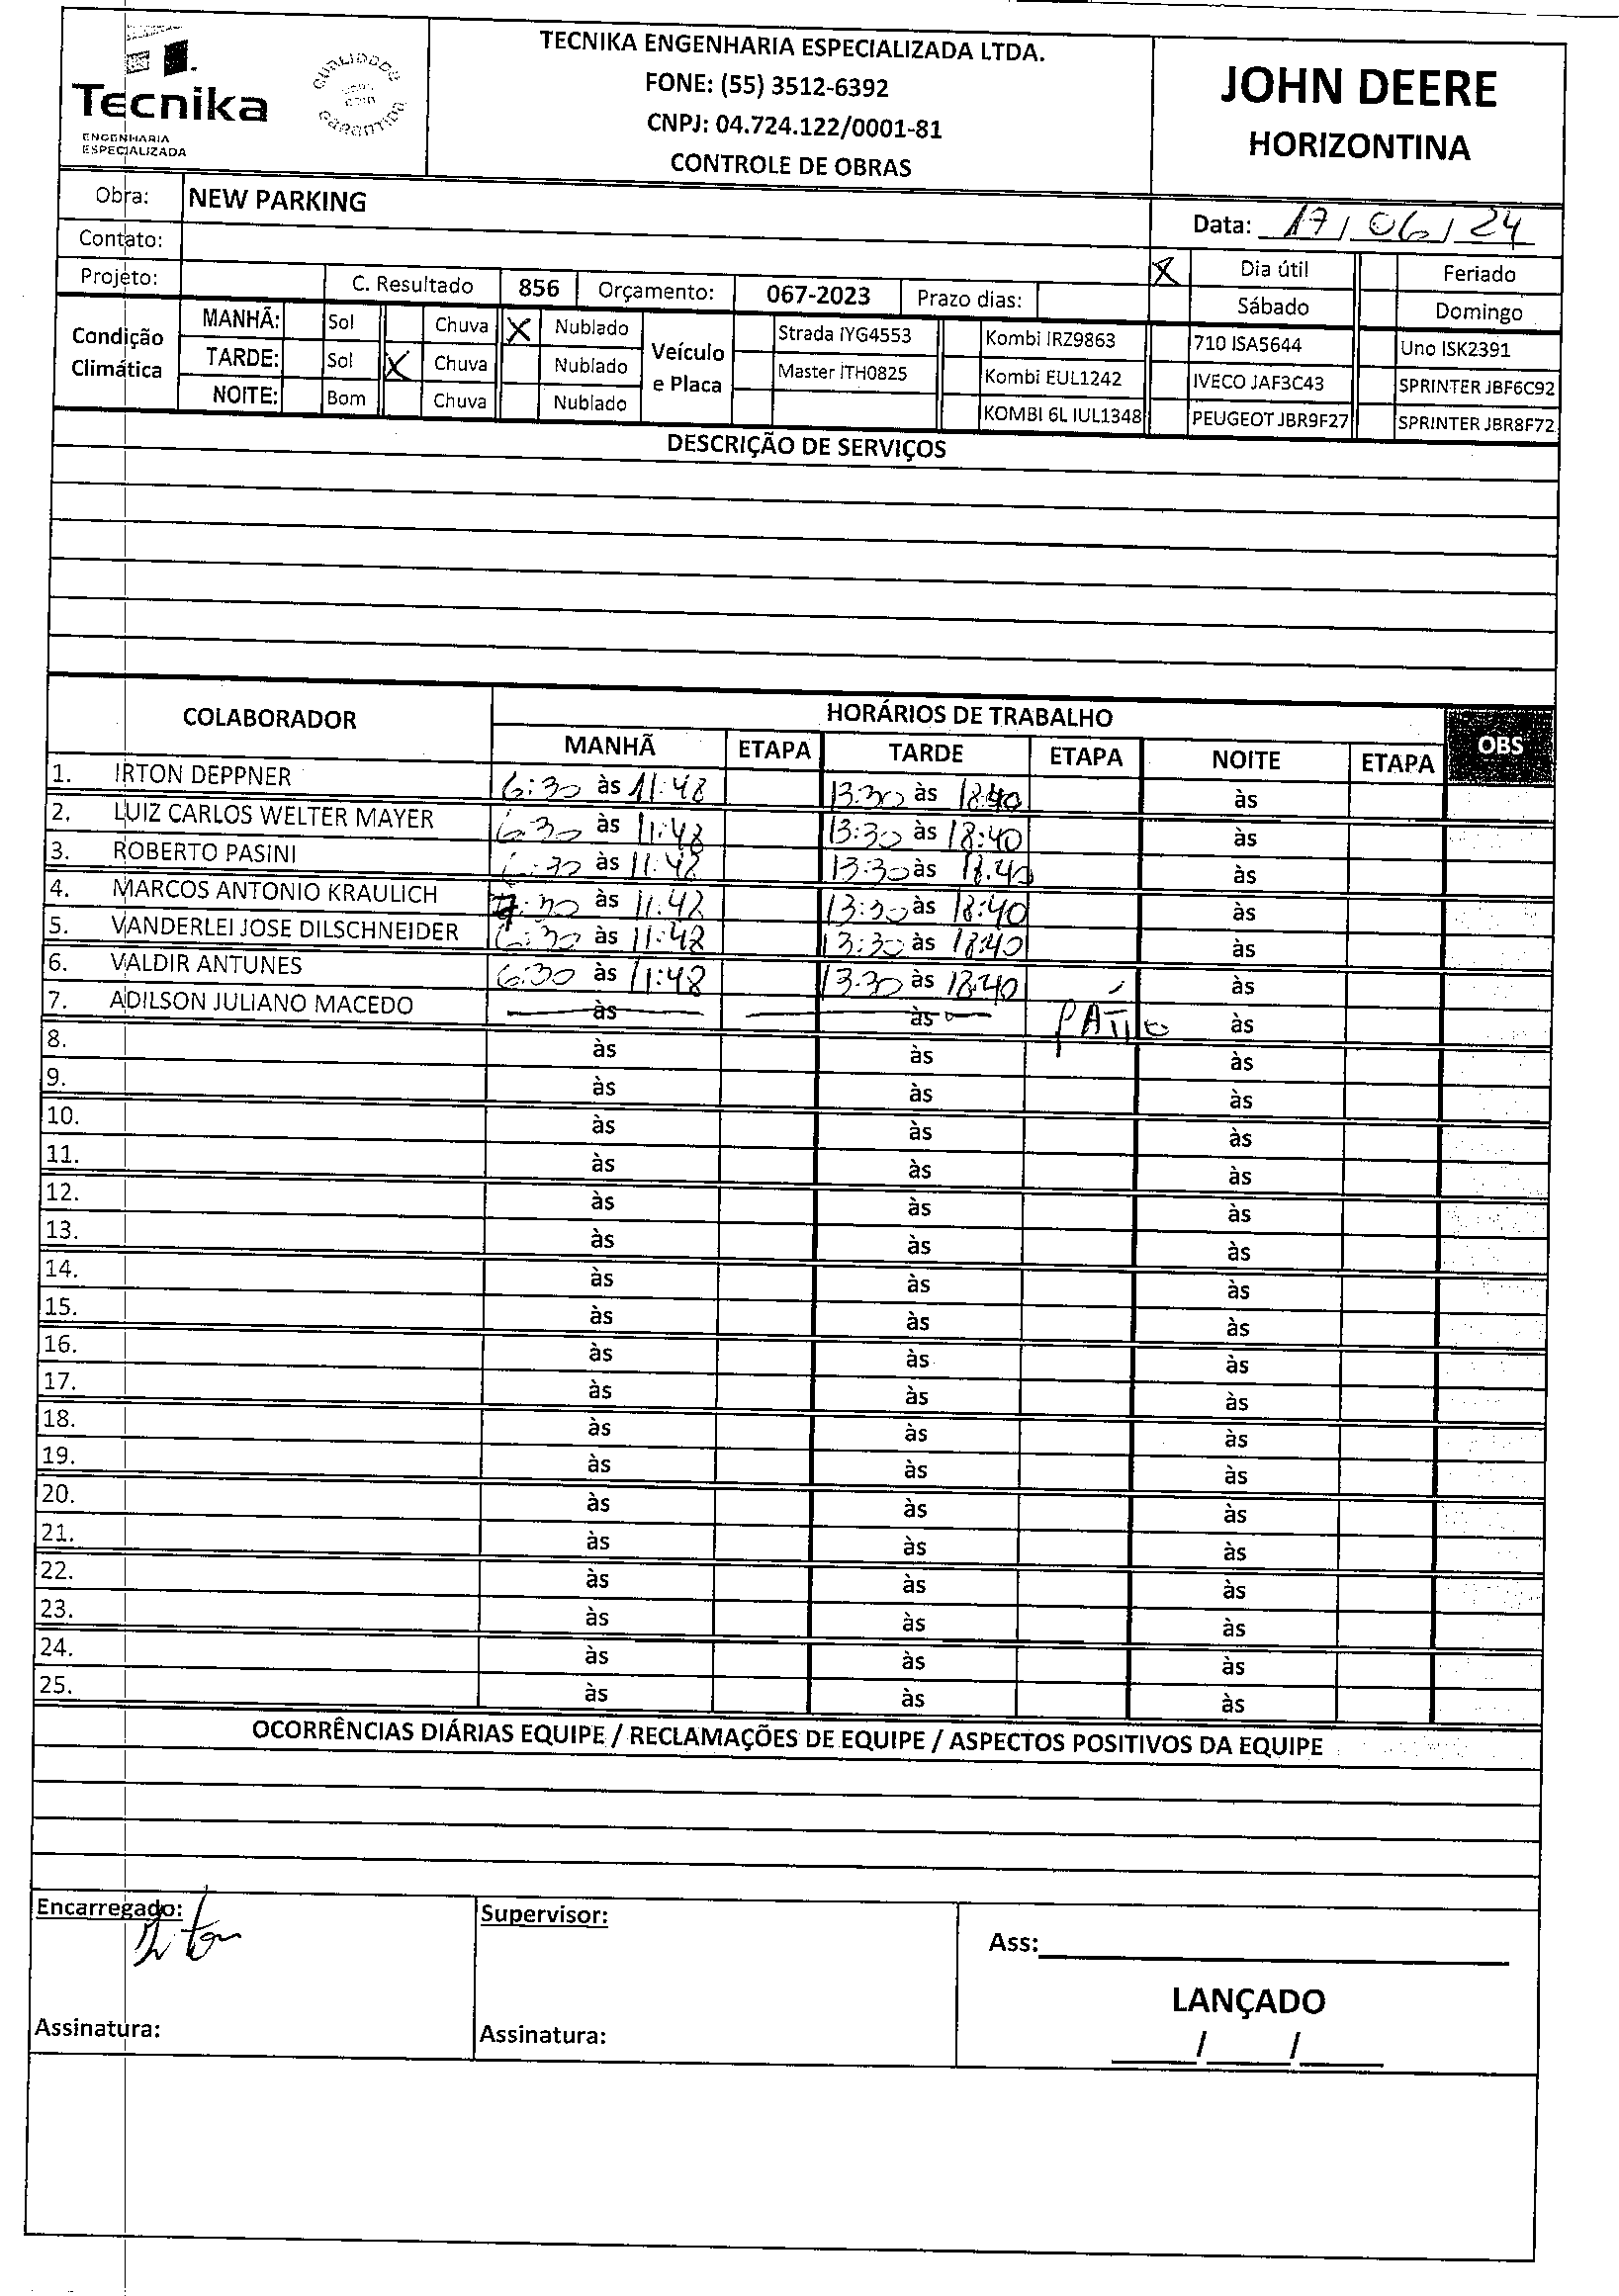 Tecnika
ENGENHARIA
ESPECIALIZADA
QUALIDADE
GARANTIDA
TECNIKA ENGENHARIA ESPECIALIZADA LTDA.
FONE: (55) 3512-6392
CNPJ: 04.724.122/0001-81
CONTROLE DE OBRAS
JOHN DEERE
HORIZONTINA
Obra: NEW PARKING
Data: 17/06/24
Contato:
X Dia útil Feriado
Projeto: C. Resultado 856 Orçamento: 067-2023 Prazo dias: Sábado Domingo
Condição Climática
MANHÃ: Sol Chuva X Nublado
TARDE: Sol X Chuva Nublado
NOITE: Bom Chuva Nublado
Veículo e Placa
Strada IYG4553 Kombi IRZ9863 710 ISA5644 Uno ISK2391
Master ITH0825 Kombi EUL1242 IVECO JAF3C43 SPRINTER JBF6C92
KOMBI 6L IUL1348 PEUGEOT JBR9F27 SPRINTER JBR8F72
DESCRIÇÃO DE SERVIÇOS
COLABORADOR HORÁRIOS DE TRABALHO OBS
MANHÃ ETAPA TARDE ETAPA NOITE ETAPA
1. IRTON DEPPNER 6:30 às 11:48 13:30 às 18:40 às
2. LUIZ CARLOS WELTER MAYER 6:30 às 11:48 13:30 às 18:40 às
3. ROBERTO PASINI 6:30 às 11:48 13:30 às 18:40 às
4. MARCOS ANTONIO KRAULICH 7:30 às 11:48 13:30 às 18:40 às
5. VANDERLEI JOSE DILSCHNEIDER 6:30 às 11:48 13:30 às 18:40 às
6. VALDIR ANTUNES 6:30 às 11:48 13:30 às 18:40 às
7. ADILSON JULIANO MACEDO às às PÁTIO às
8. às às às
9. às às às
10. às às às
11. às às às
12. às às às
13. às às às
14. às às às
15. às às às
16. às às às
17. às às às
18. às às às
19. às às às
20. às às às
21. às às às
22. às às às
23. às às às
24. às às às
25. às às às
OCORRÊNCIAS DIÁRIAS EQUIPE / RECLAMAÇÕES DE EQUIPE / ASPECTOS POSITIVOS DA EQUIPE
Encarregado: Irton
Supervisor:
Ass:
LANÇADO
Assinatura:
Assinatura:
/ /